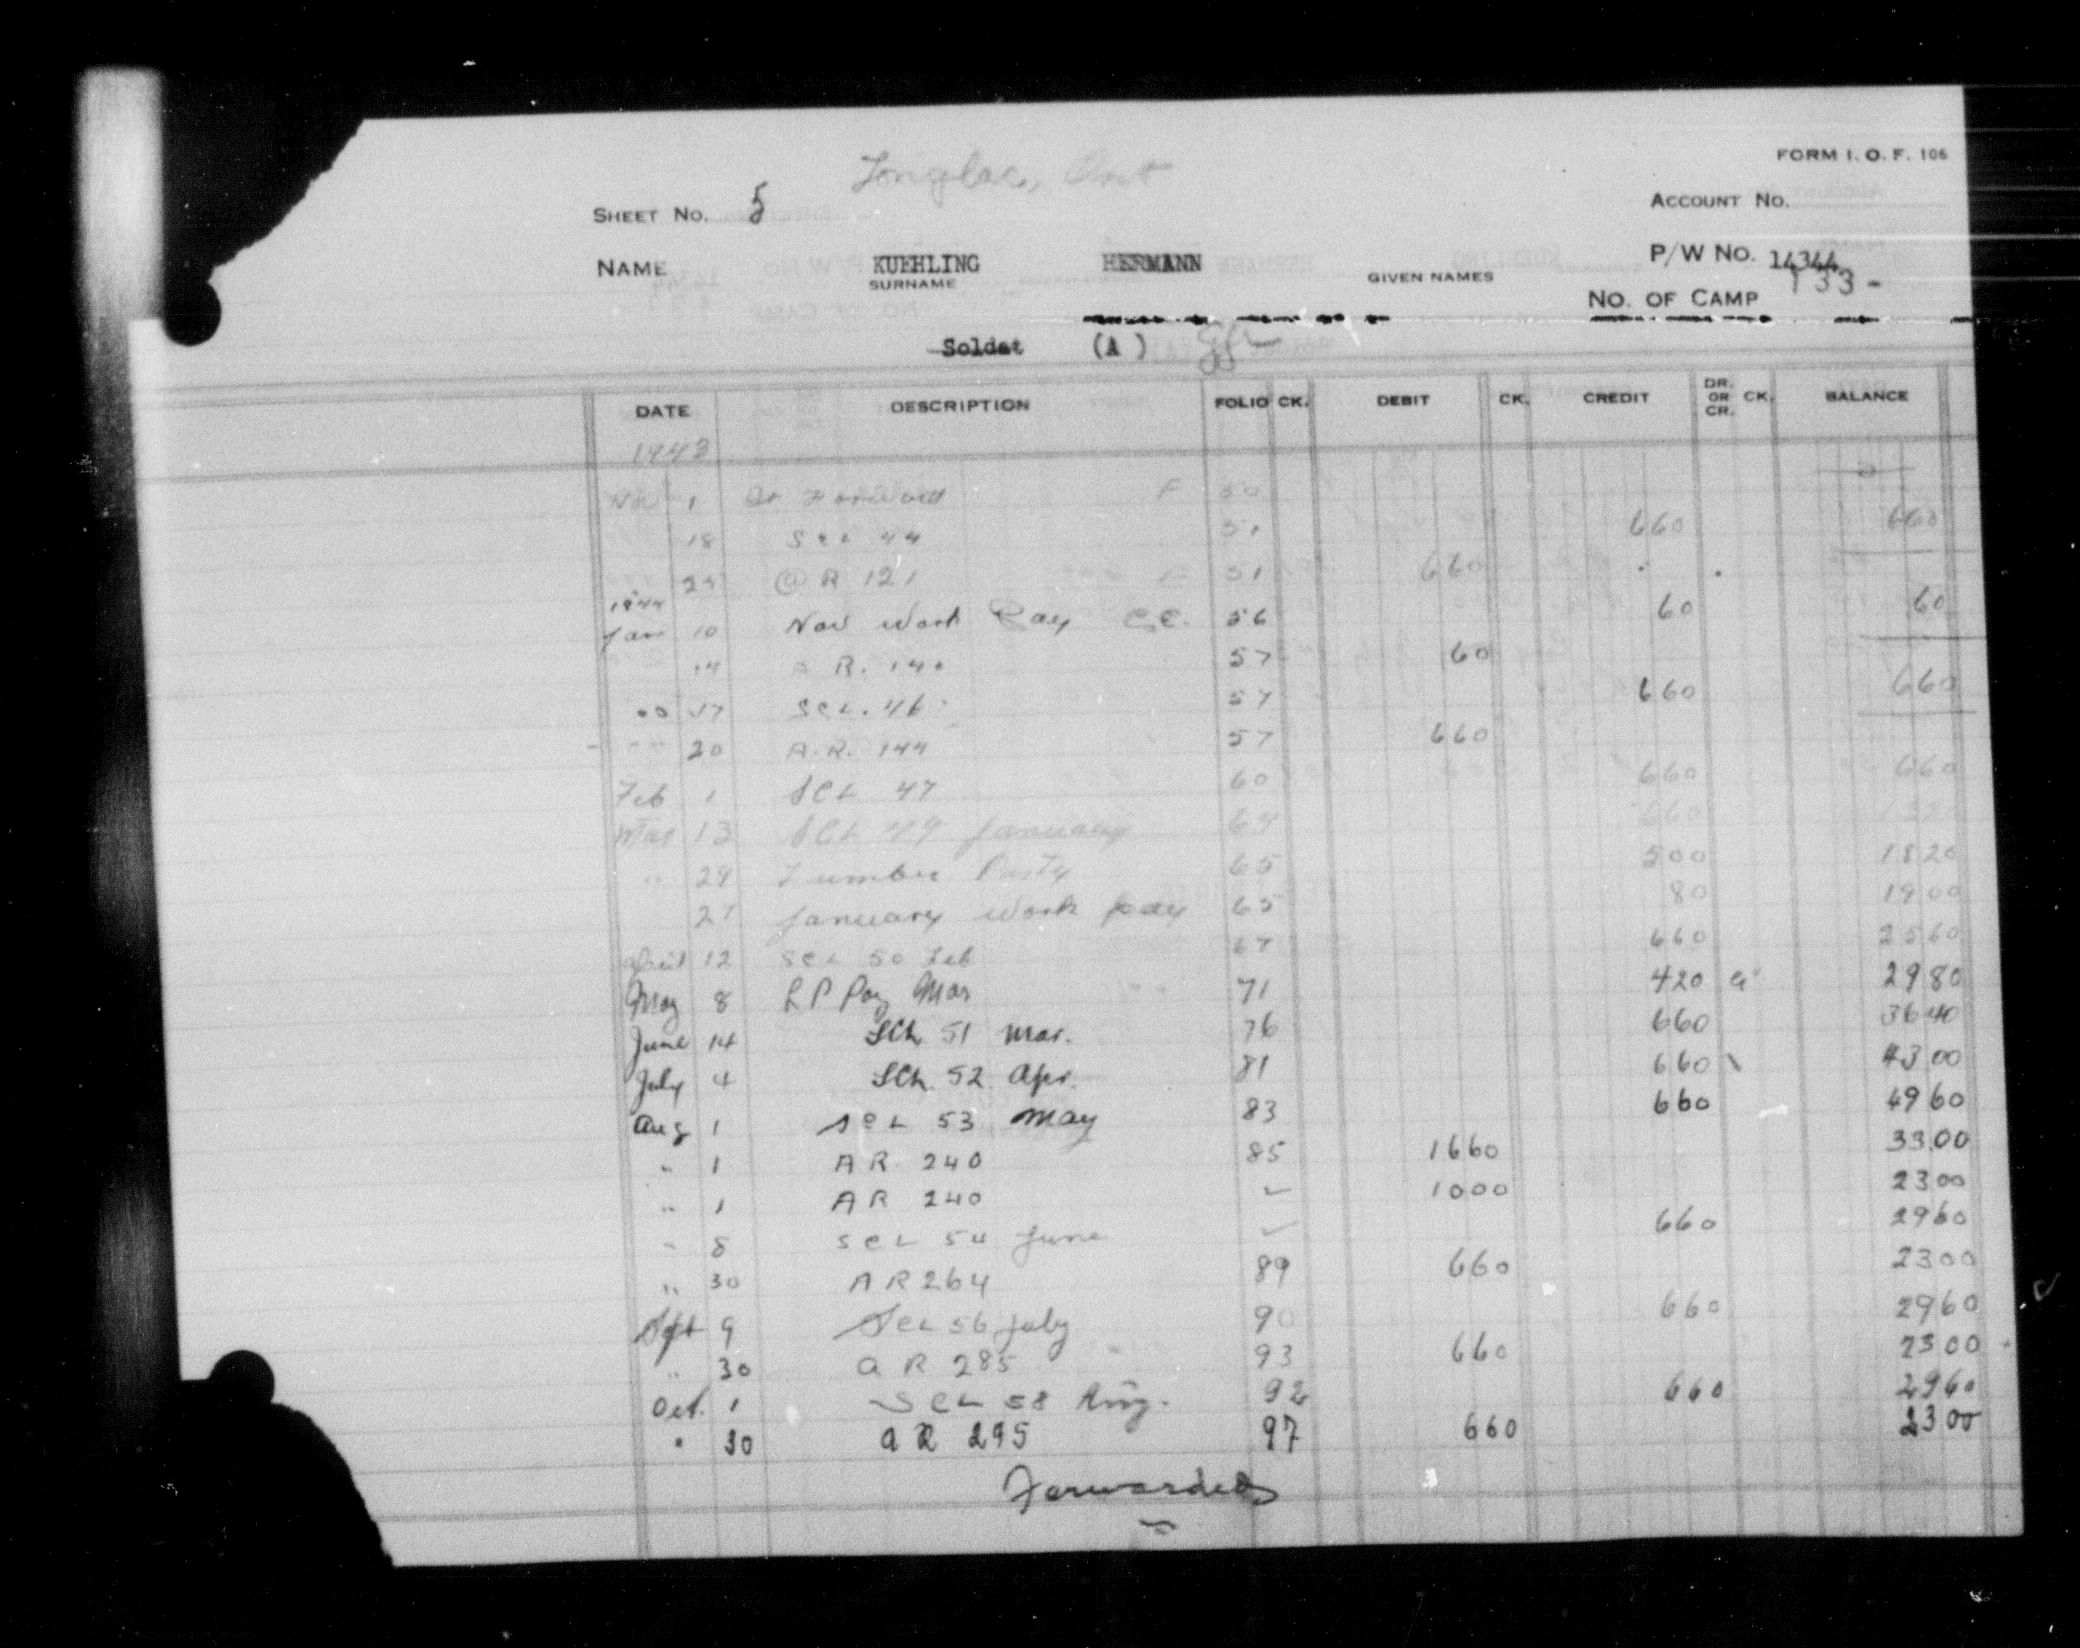 Longlac, Ont
FORM I. O. F. 106
SHEET NO. 5
ACCOUNT NO.
NAME KUEHLING HERMANN P/W NO. 14344
SURNAME GIVEN NAMES
NO. OF CAMP 133-
Soldat (A) Gfr
DATE DESCRIPTION FOLIO CK. DEBIT CK. CREDIT DR. OR CR. CK. BALANCE
1943
Nov 1 Forward F 50
18 SCL 44 51 660 660
25 @ R 121 51 660
1944
Jan 10 Nov Work Pay C.C. 56 60 60
14 A R. 140 57 60
17 SCL. 46 57 660 660
20 A.R. 144 57 660
Feb 1 SCL 47 60 660 660
Mar 13 SCL 49 January 64 660 1320
" 29 Lumber Party 65 500 1820
27 January Work pay 65 80 1900
April 12 SCL 50 Feb 67 660 2560
May 8 L P Pay Mar 71 420 2980
June 14 SCL 51 Mar. 76 660 3640
July 4 SCL 52 Apr. 81 660 4300
Aug 1 SCL 53 May 83 660 4960
" 1 A R 240 85 1660 3300
" 1 A R 240 ✓ 1000 2300
" 8 SCL 54 June ✓ 660 2960
" 30 A R 264 89 660 2300
Sept 9 SCL 56 July 90 660 2960
" 30 a R 285 93 660 2300
Oct. 1 SCL 58 Aug. 92 660 2960
" 30 a R 295 97 660 2300
Forwarded